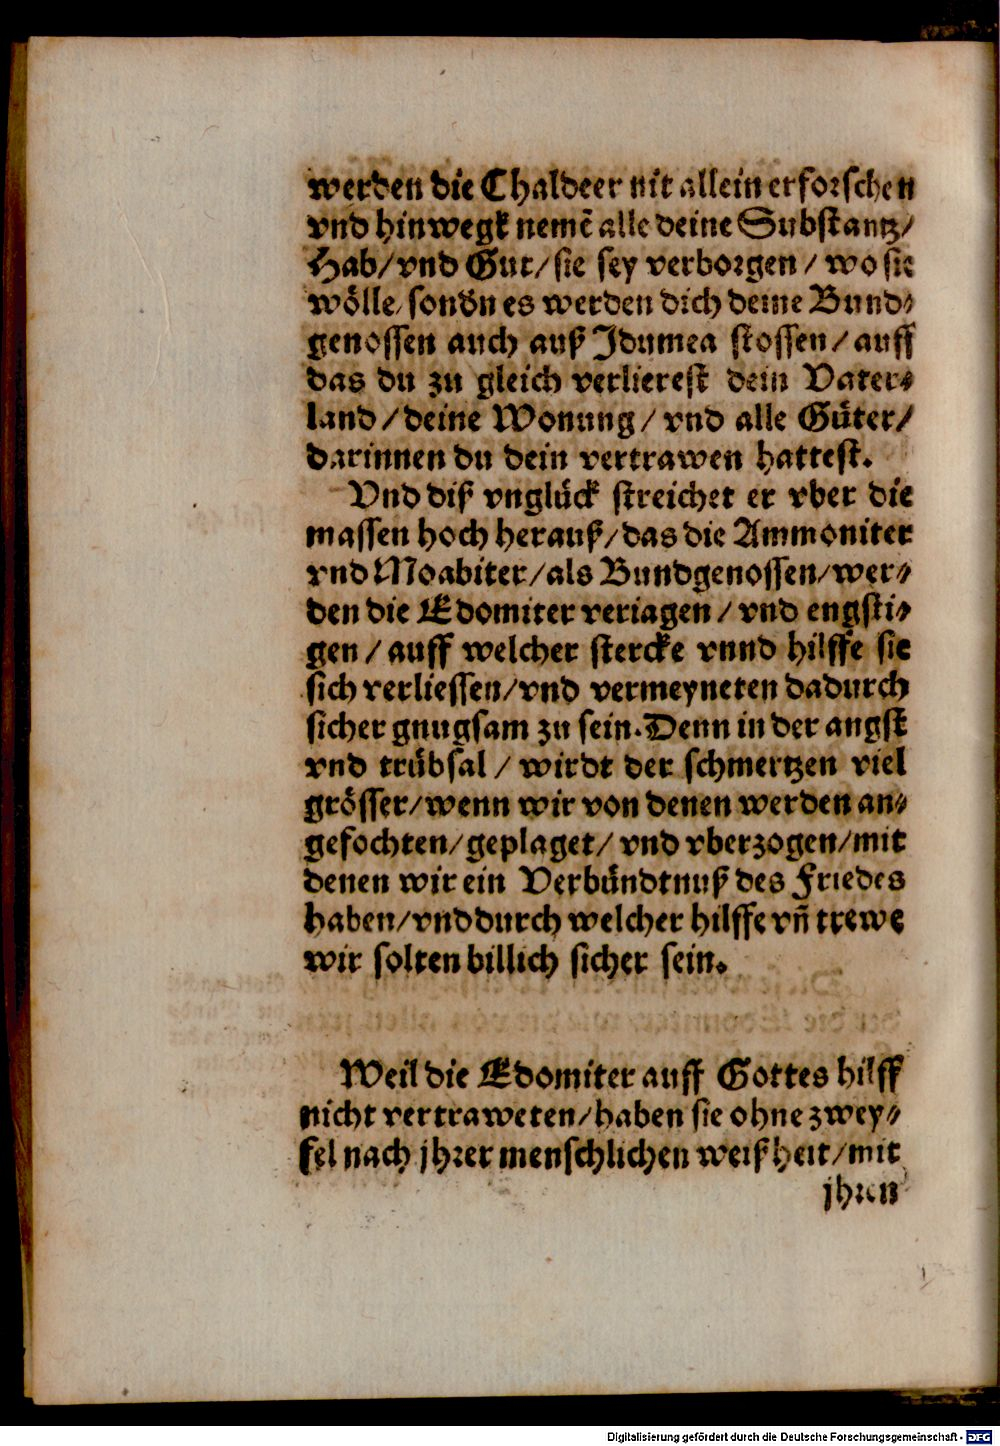 werden die Chaldeer nit allein erforschen
vnd hinwegk nemẽ alle deine Substantz/
Hab/vnd Gut/sie sey verborgen/wo sie
wölle/sondn̄ es werden dich deine Bund⸗
genossen auch auß Idumea stossen/auff
das du zu gleich verlierest dein Vater⸗
land/deine Wonung/vnd alle Güter/
darinnen du dein vertrawen hattest.
Vnd diß vnglück streichet er vber die
massen hoch herauß/das die Ammoniter
vnd Moabiter/als Bundgenossen/wer⸗
den die Edomiter veriagen/vnd engsti⸗
gen/auff welcher stercke vnnd hilffe sie
sich verliessen/vnd vermeyneten dadurch
sicher gnugsam zu sein. Denn in der angst
vnd trübsal/wirdt der schmertzen viel
grösser/wenn wir von denen werden an⸗
gefochten/geplaget/vnd vberzogen/mit
denen wir ein Verbündtnuß des Friedes
haben/vnd durch welcher hilffe vñ trewe
wir solten billich sicher sein.
Weil die Edomiter auff Gottes hilff
nicht vertraweten/haben sie ohne zwey⸗
fel nach jhrer menschlichen weißheit/mit
jhren
Digitalisierung gefördert durch die Deutsche Forschungsgemeinschaft - DFG